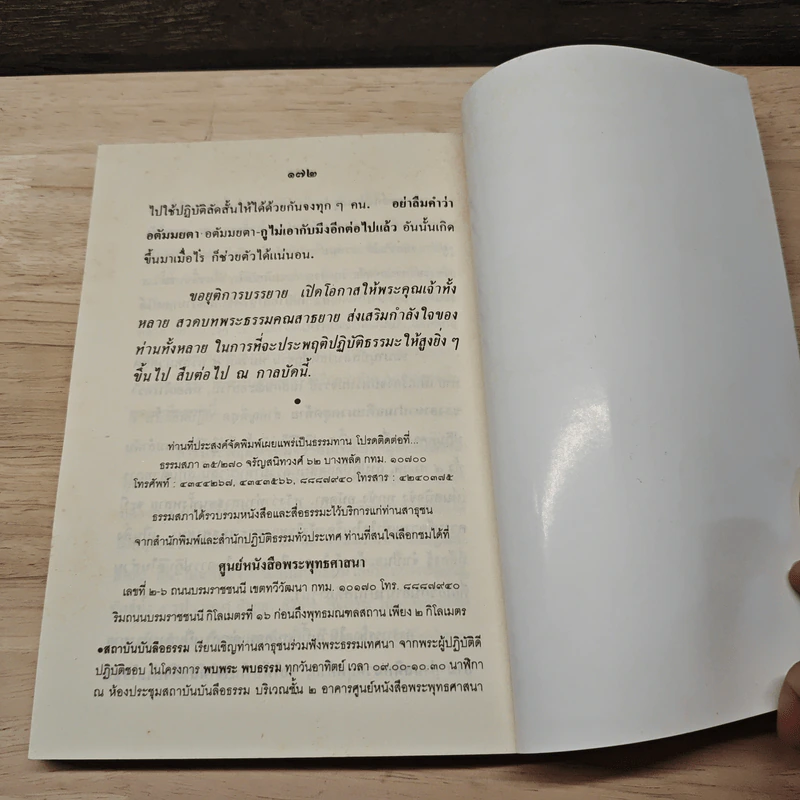 ๑๗๒
ไปใช้ปฏิบัติลัดสั้นให้ได้ด้วยกันจงทุก ๆ คน. อย่าลืมคำว่า
อตัมมยตา อตัมมยตา-กูไม่เอากับมึงอีกต่อไปแล้ว อันนั้นเกิด
ขึ้นมาเมื่อไร ก็ช่วยตัวได้แน่นอน.
ขอยุติการบรรยาย เปิดโอกาสให้พระคุณเจ้าทั้ง
หลาย สวดบทพระธรรมคณสาธยาย ส่งเสริมกำลังใจของ
ท่านทั้งหลาย ในการที่จะประพฤติปฏิบัติธรรมะให้สูงยิ่ง ๆ
ขึ้นไป สืบต่อไป ณ กาลบัดนี้.
ท่านที่ประสงค์จัดพิมพ์เผยแพร่เป็นธรรมทาน โปรดติดต่อที่...
ธรรมสภา ๓๕/๒๗๐ จรัญสนิทวงศ์ ๖๒ บางพลัด กทม. ๑๐๗๐๐
โทรศัพท์ : ๔๓๔๔๒๖๗, ๔๓๔๓๕๖๖, ๘๘๘๗๙๔๐ โทรสาร : ๔๒๔๐๓๗๕
ธรรมสภาได้รวบรวมหนังสือและสื่อธรรมะไว้บริการแก่ท่านสาธุชน
จากสำนักพิมพ์และสำนักปฏิบัติธรรมทั่วประเทศ ท่านที่สนใจเลือกชมได้ที่
ศูนย์หนังสือพระพุทธศาสนา
เลขที่ ๒-๖ ถนนบรมราชชนนี เขตทวีวัฒนา กทม. ๑๐๑๗๐ โทร. ๘๘๘๗๙๔๐
ริมถนนบรมราชชนนี กิโลเมตรที่ ๑๖ ก่อนถึงพุทธมณฑลสถาน เพียง ๒ กิโลเมตร
•สถาบันบันลือธรรม เรียนเชิญท่านสาธุชนร่วมฟังพระธรรมเทศนา จากพระผู้ปฏิบัติดี
ปฏิบัติชอบ ในโครงการ พบพระ พบธรรม ทุกวันอาทิตย์ เวลา ๐๙.๐๐-๑๐.๓๐ นาฬิกา
ณ ห้องประชุมสถาบันบันลือธรรม บริเวณชั้น ๒ อาคารศูนย์หนังสือพระพุทธศาสนา